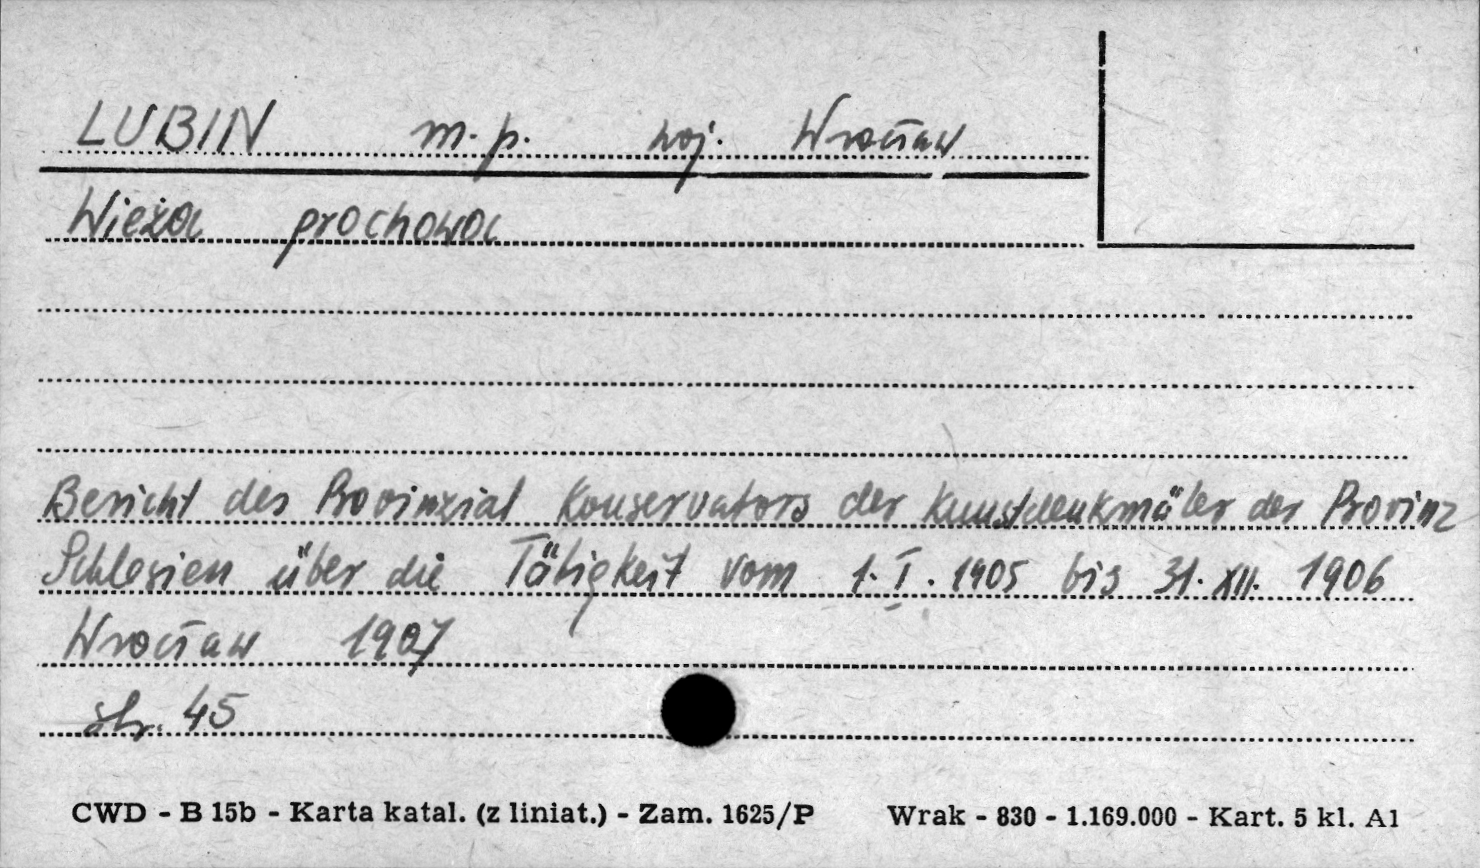 LUBIN m.p. woj. Wrocław
Wieża prochowa
Bericht des Provinzial Konservators der Kunstdenkmäler der Provinz
Schlesien über die Tätigkeit vom 1. I. 1905 bis 31. XII. 1906
Wrocław 1907
str. 45
CWD - B 15b - Karta katal. (z liniat.) - Zam. 1625/P Wrak - 830 - 1.169.000 - Kart. 5 kl. A1